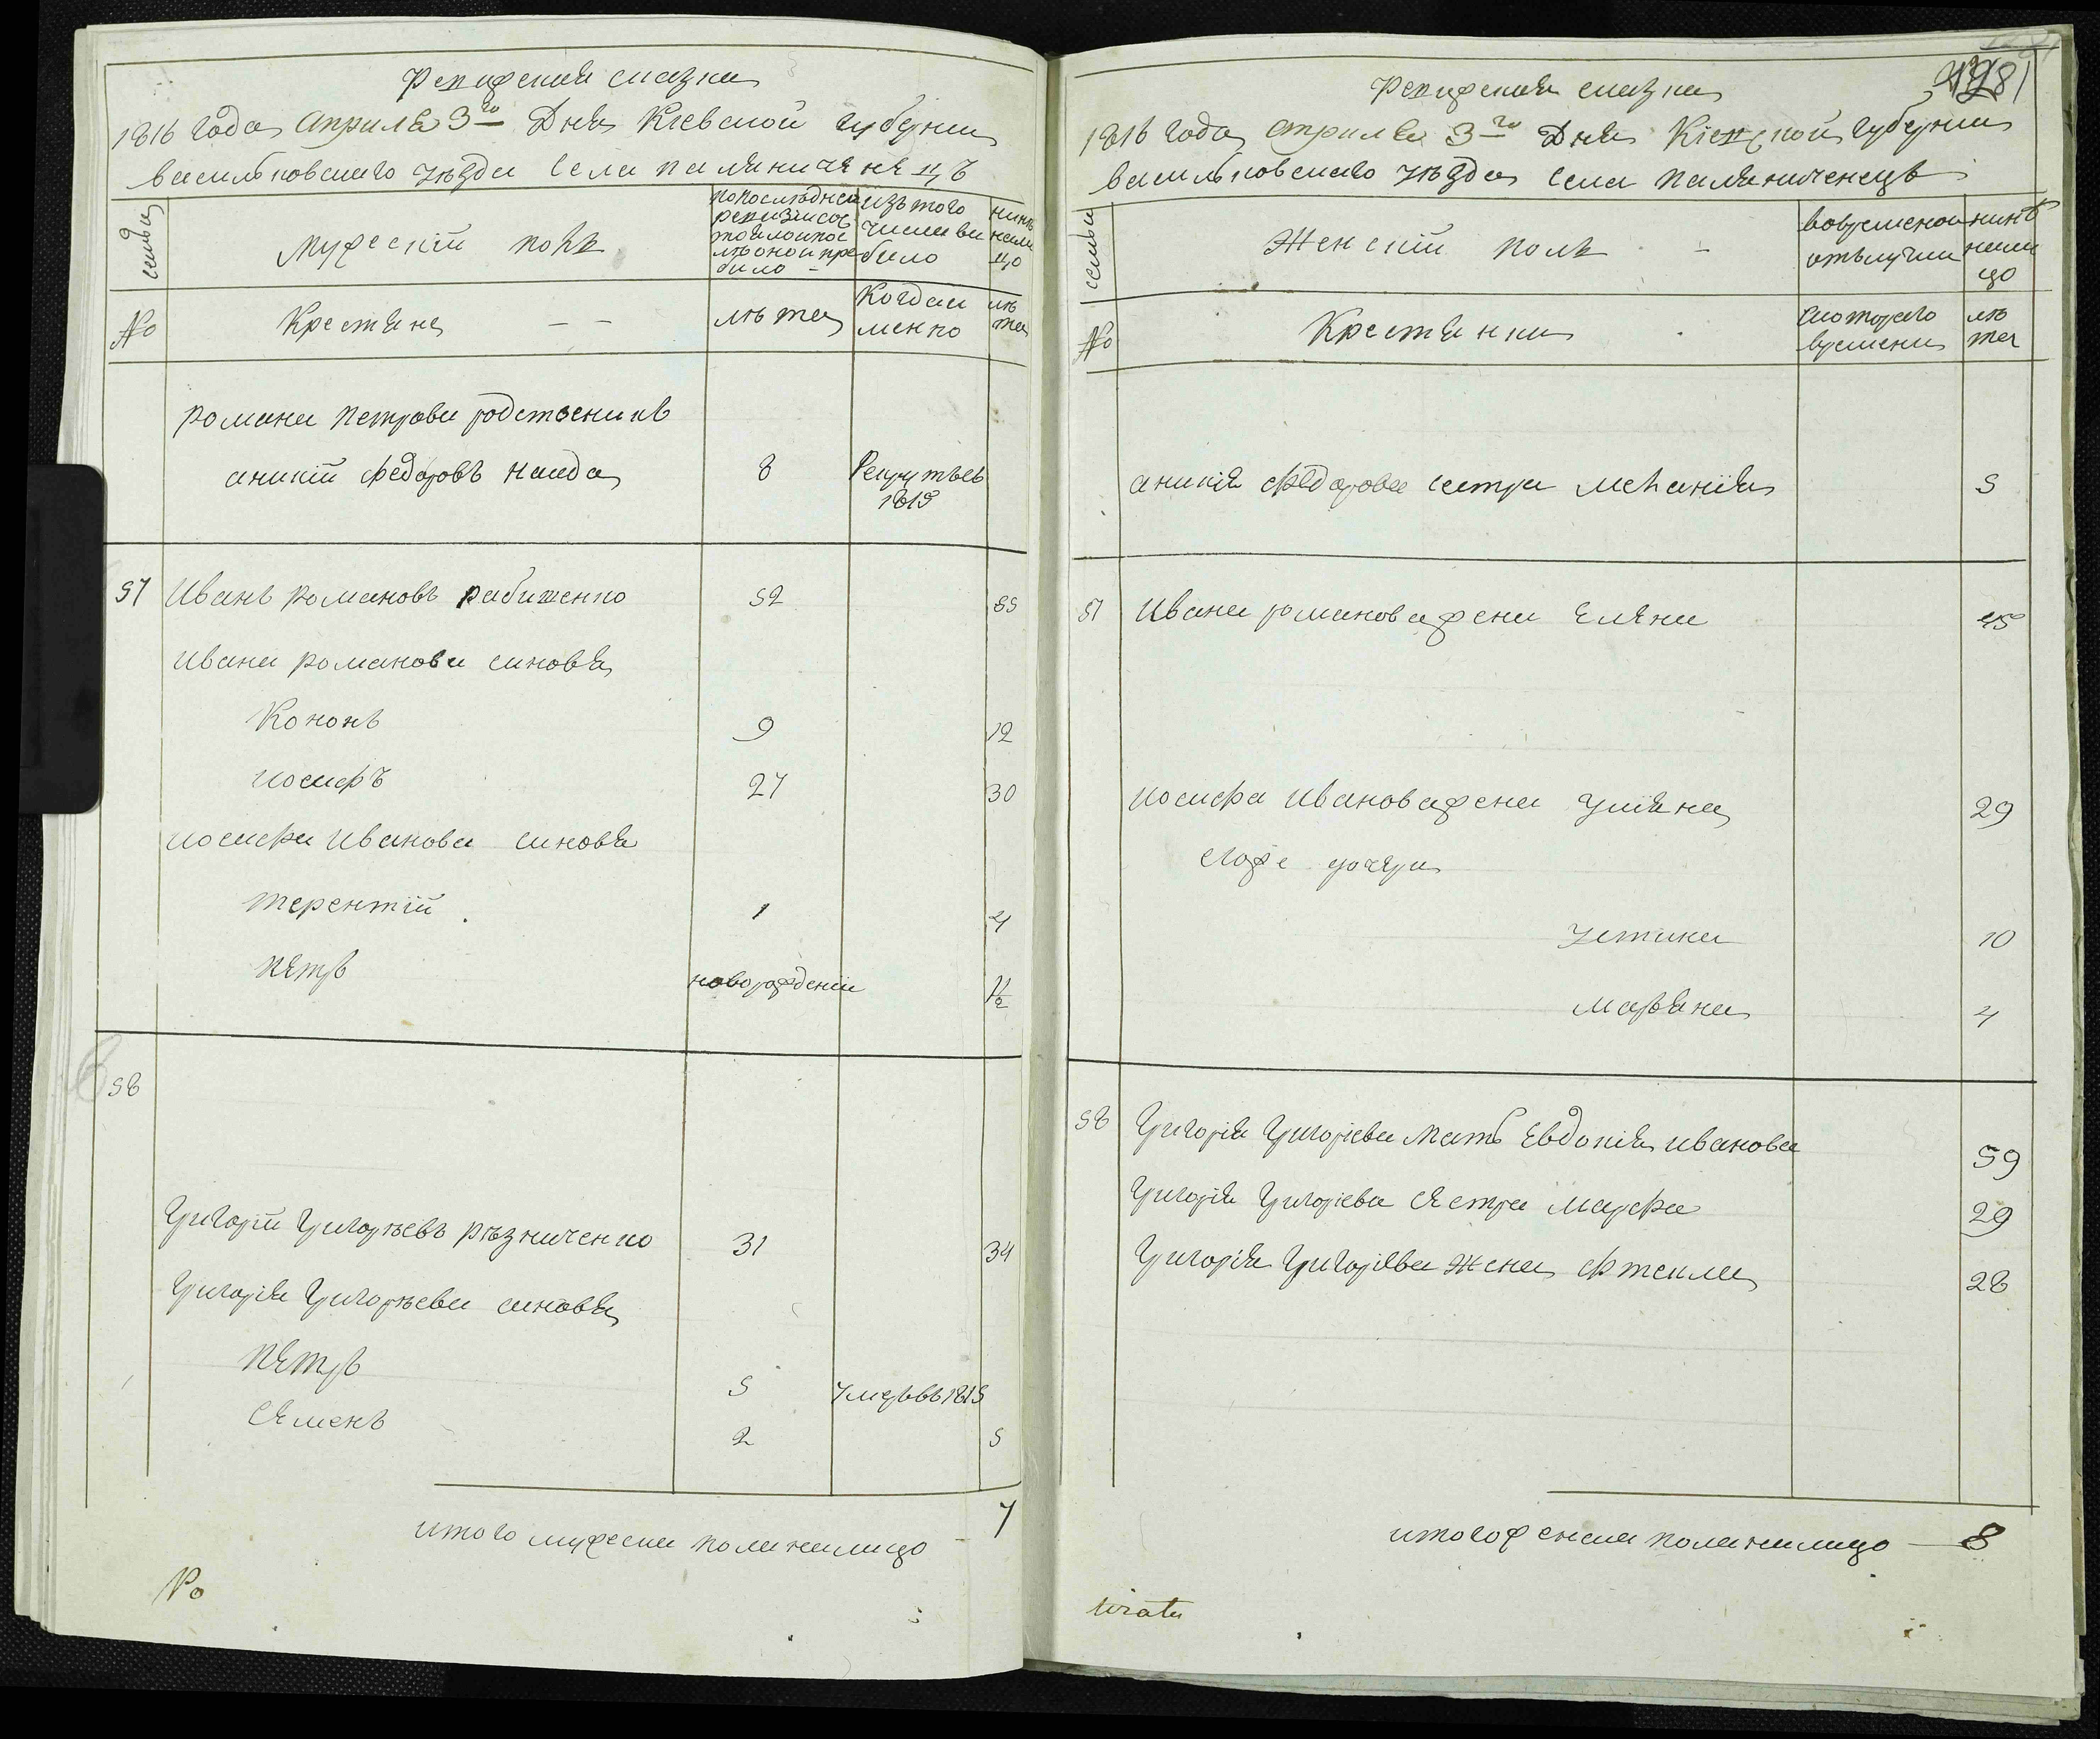 Ревизская сказка
1816 года апреля 3го Дня Кіевской губерніи
васильковскаго уезда села паляниченецъ
семьи
мужескій полъ
изъ того
числа ви
било
нине
нали
цо
№
Крестяне
лъта
Когда и
менно
лъ
та
романа петрова родственникъ
аникій федоровъ наида
8
Рекрутъ въ
1813
57 Иванъ романовъ рабиженко 52 55
ивана романова синовя
Кононъ 9 12
иосифъ 27 30
иосифа иванова синовя
терентій 1 4
петръ новорожденій 1½
58
Григорій Григорьевъ резниченко 31 34
Григорія Григорьева синовя
петръ 5 умеръ въ 1815
Семенъ 2 5
итого мужеска пола налицо 7
№
Ревизская сказка
1816 года апреля 3го Дня Кіевской губерніи
васильковскаго уезда села паляниченецъ
семьи
Женскій полъ
вовременой
отълучки
нинъ
нали
цо
№
Крестянки
скоторого
времени
лъ
та
аникія федорова сестра меланія 5
57 Ивана романова жена Еляна 45
иосифа иванова жена уліяна 29
егоже дочери
устина 10
маряна 4
58 Григорія Григорієва мать Евдокія иванова 59
Григорія Григорієва сестра марфа 29
Григорія Григорієва жена фтекла 28
итого женска пола налицо 8
wiatu